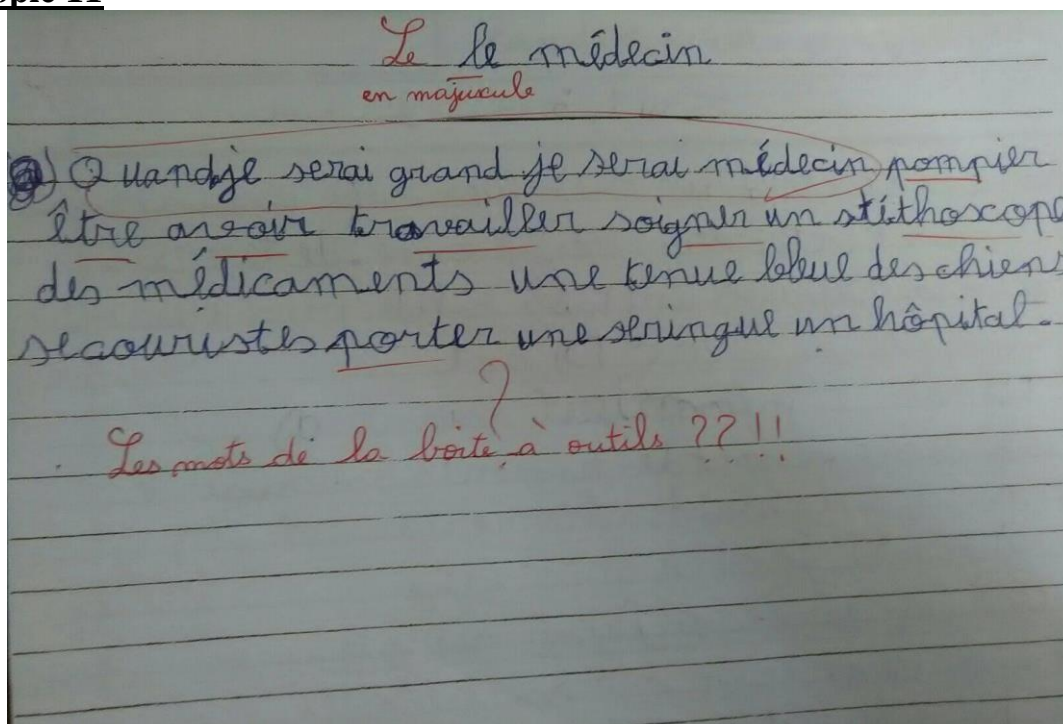 Le le médecin
en majuscule
Quand je serai grand je serai médecin pompier
être avoir travailler soigner un stéthoscope
des médicaments une tenue bleue des chiens
secouristes porter une seringue un hôpital.
?
Les mots de la boite à outils ??!!